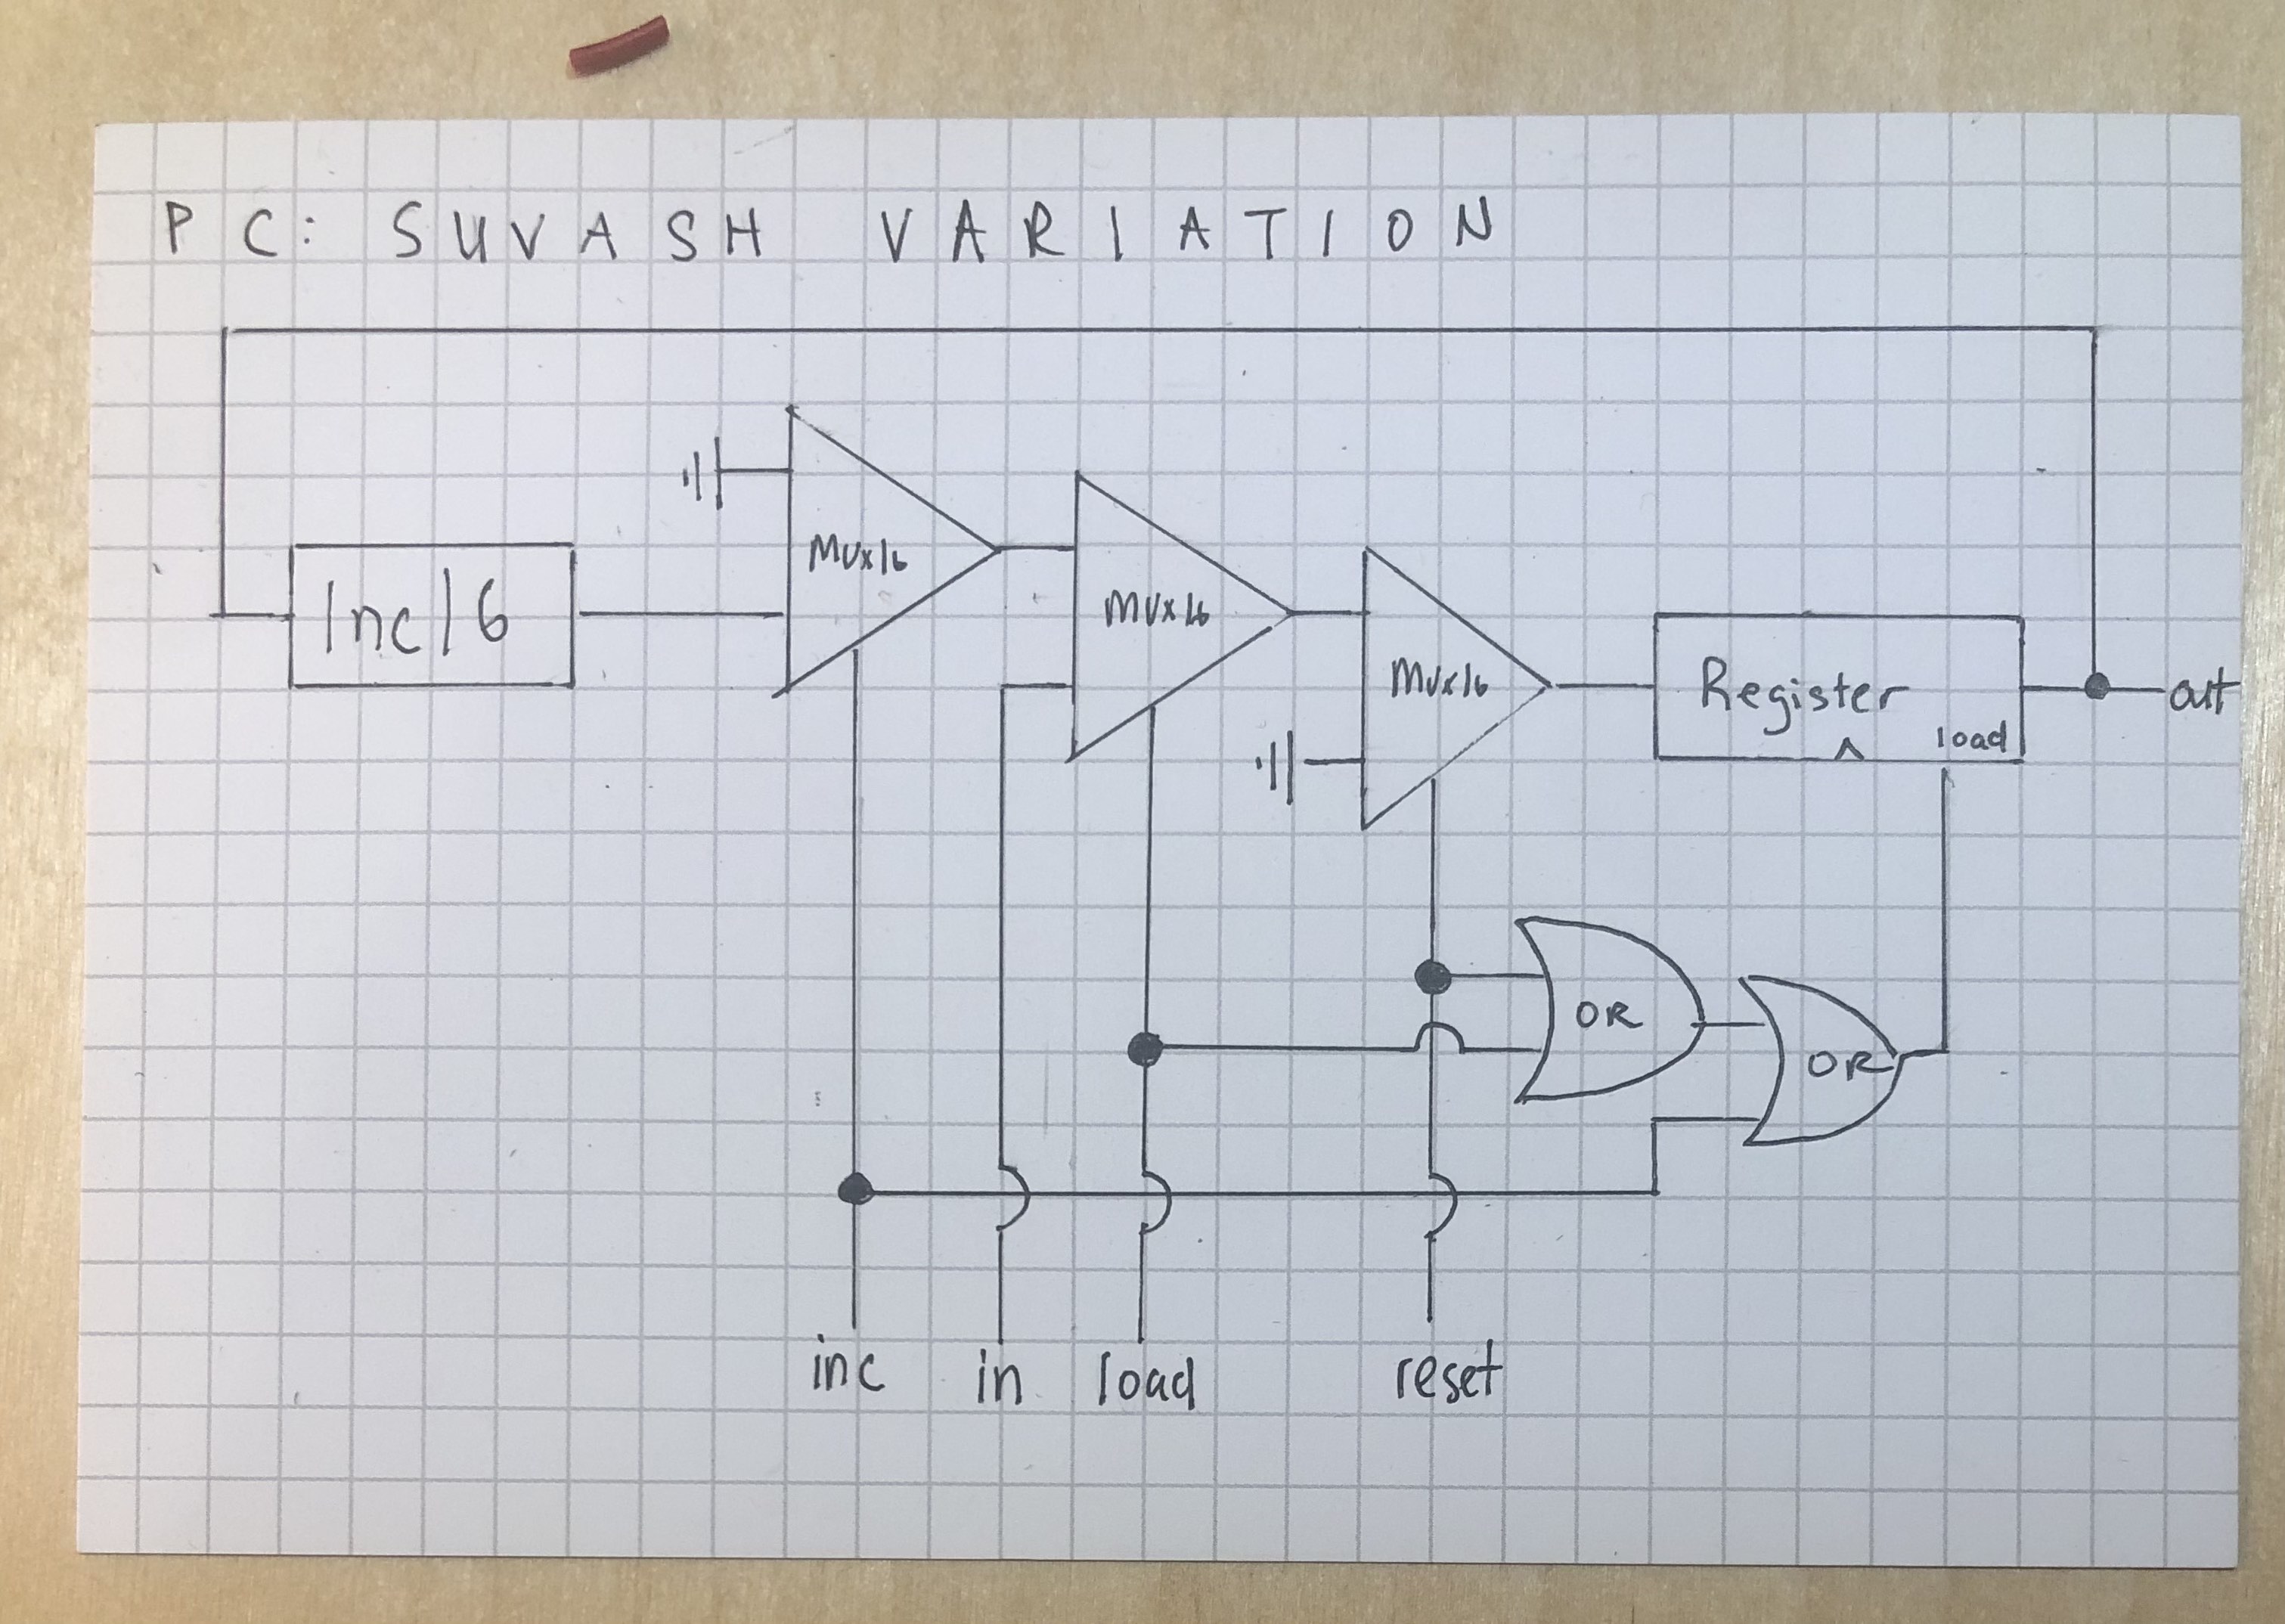 PC: SUVASH VARIATION
Mux16
Inc16
Mux16
Mux16
Register
out
load
OR
OR
inc in load reset